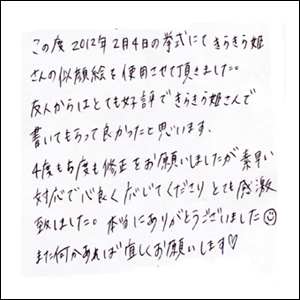 この度2012年2月4日の挙式にてきらきら姫
さんの似顔絵を使用させて頂きました。
友人からはとても好評できらきら姫さんで
書いてもらって良かったと思います、
4度も5度も修正をお願いしましたが素早い
対応で心良く応じてくださりとても感激
致しました。本当にありがとうございました☺
また何かあれば宜しくお願いします♡